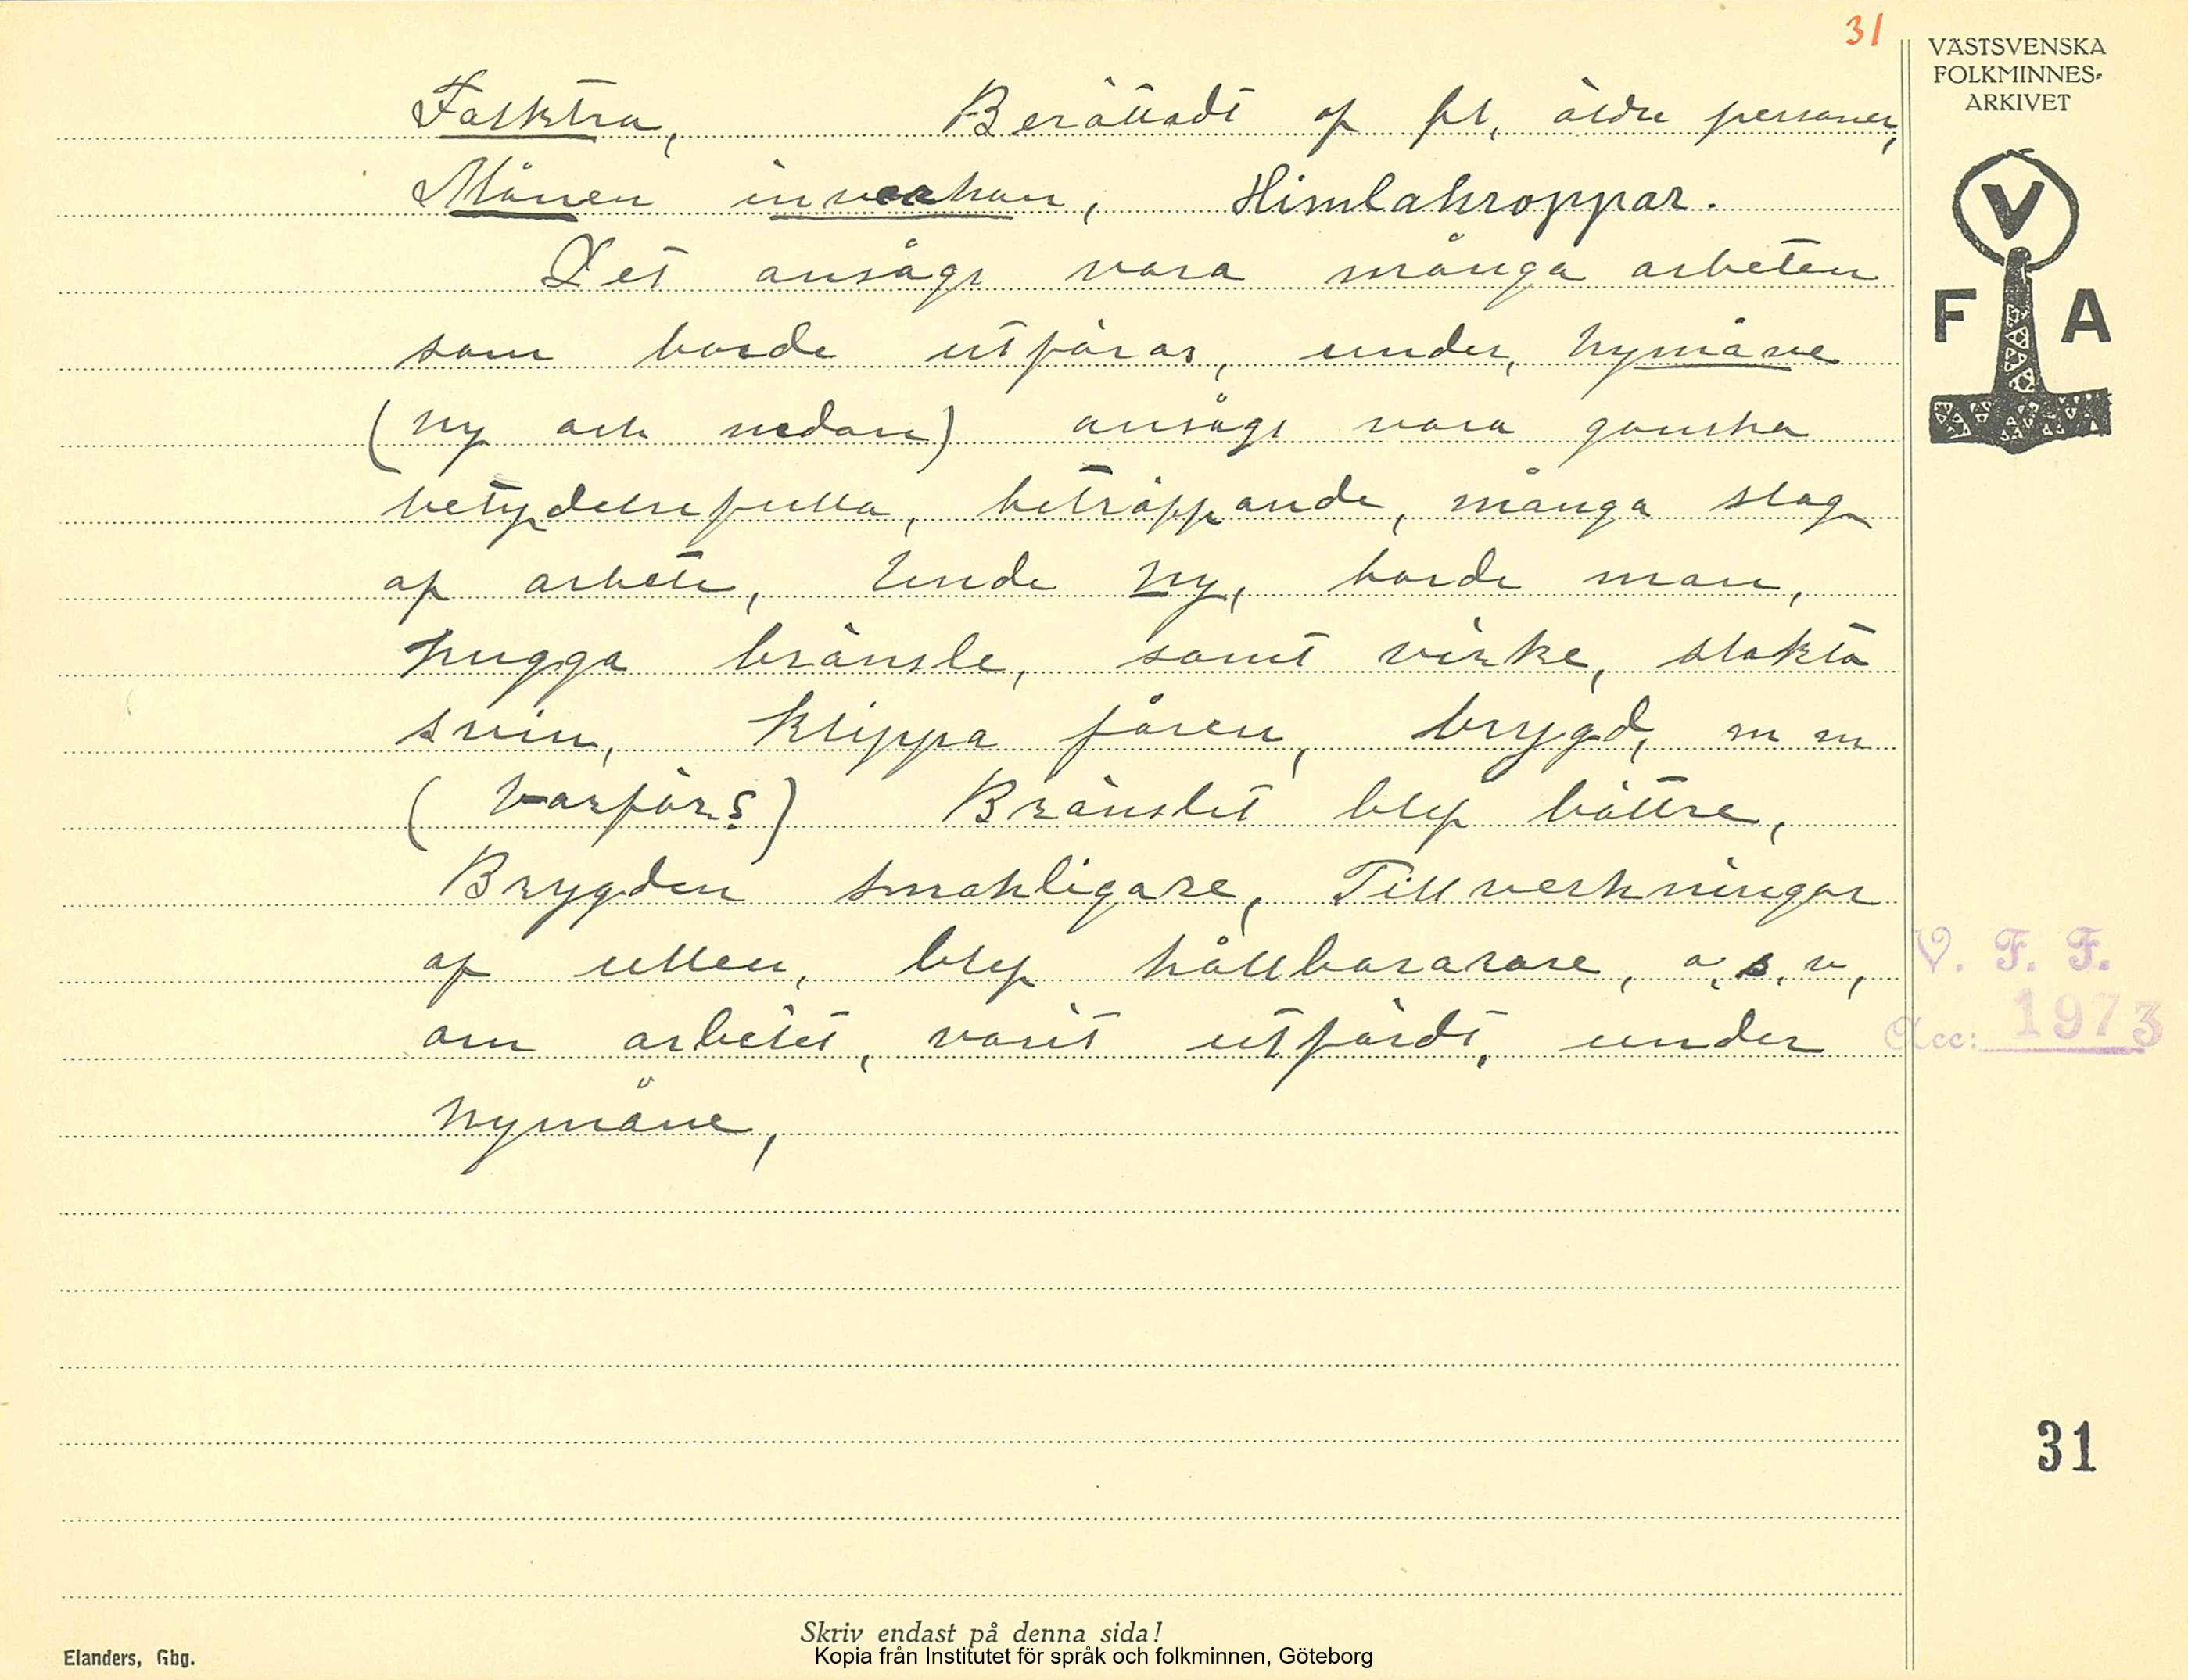 31
VÄSTSVENSKA
FOLKMINNES-
ARKIVET
Folktro, Berättadt af fl, äldre personer,
Månen inverkan, Himlakroppar.
Det ansågs vara många arbeten
som borde utföras, under, Nymåne
(ny och nedan) ansågs vara ganska
betydelsefulla, beträffande, många slag
af arbete, Unde Ny, borde man,
hugga bränsle, samt virke, slakta
svin, klippa fåren, brygd, m m
(Varför?) Bränslet blef bättre,
Brygden smakligare, Tillverkningar
af ullen, blef hållbararare, o, s, v,
om arbetet, varit utfördt, under
Nymåne,
V
F A
V. F. F.
Acc: 1973
31
Skriv endast på denna sida!
Kopia från Institutet för språk och folkminnen, Göteborg
Elanders, Gbg.